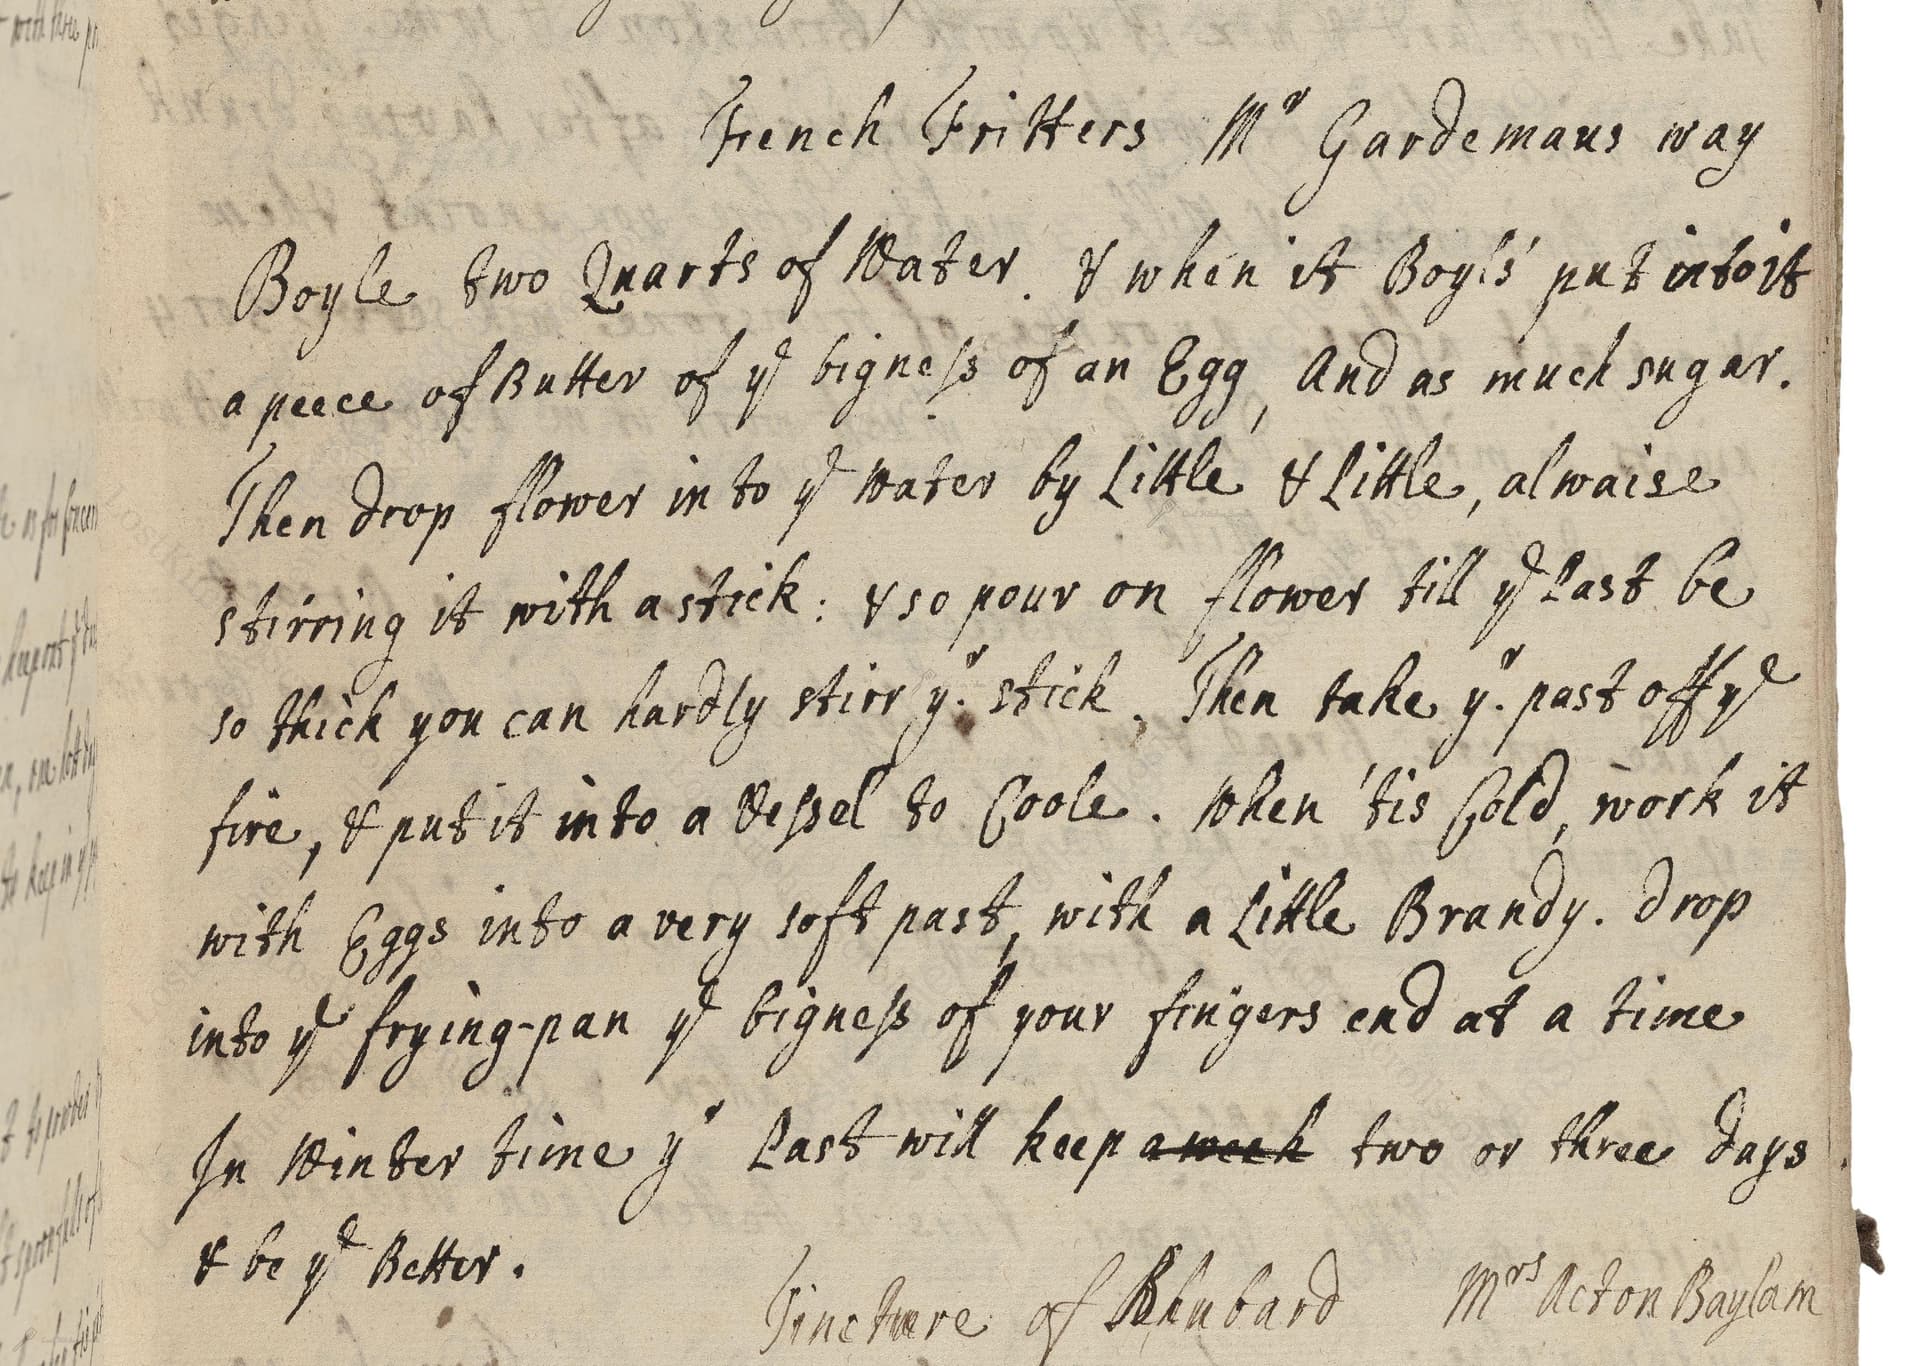 French Fritters Mr Gardemaus way
Boyle two Quarts of Water. & when it Boyls put into it
a peece of Butter of ye bigness of an Egg, And as much sugar.
Then drop flower into ye Water by Little & Little, alwaise
stirring it with a stick: & so pour on flower till ye Past be
so thick you can hardly stirr yr. stick. Then take yr. past off ye
fire, & put it into a Vessel to Coole. When 'tis Cold, work it
with Eggs into a very soft past, with a Little Brandy. Drop
into ye frying-pan ye bigness of your fingers end at a time
In Winter time yr Past will keep a week two or three days
& be ye Better.
Tincture of Rhubard Mrs Acton Baylam